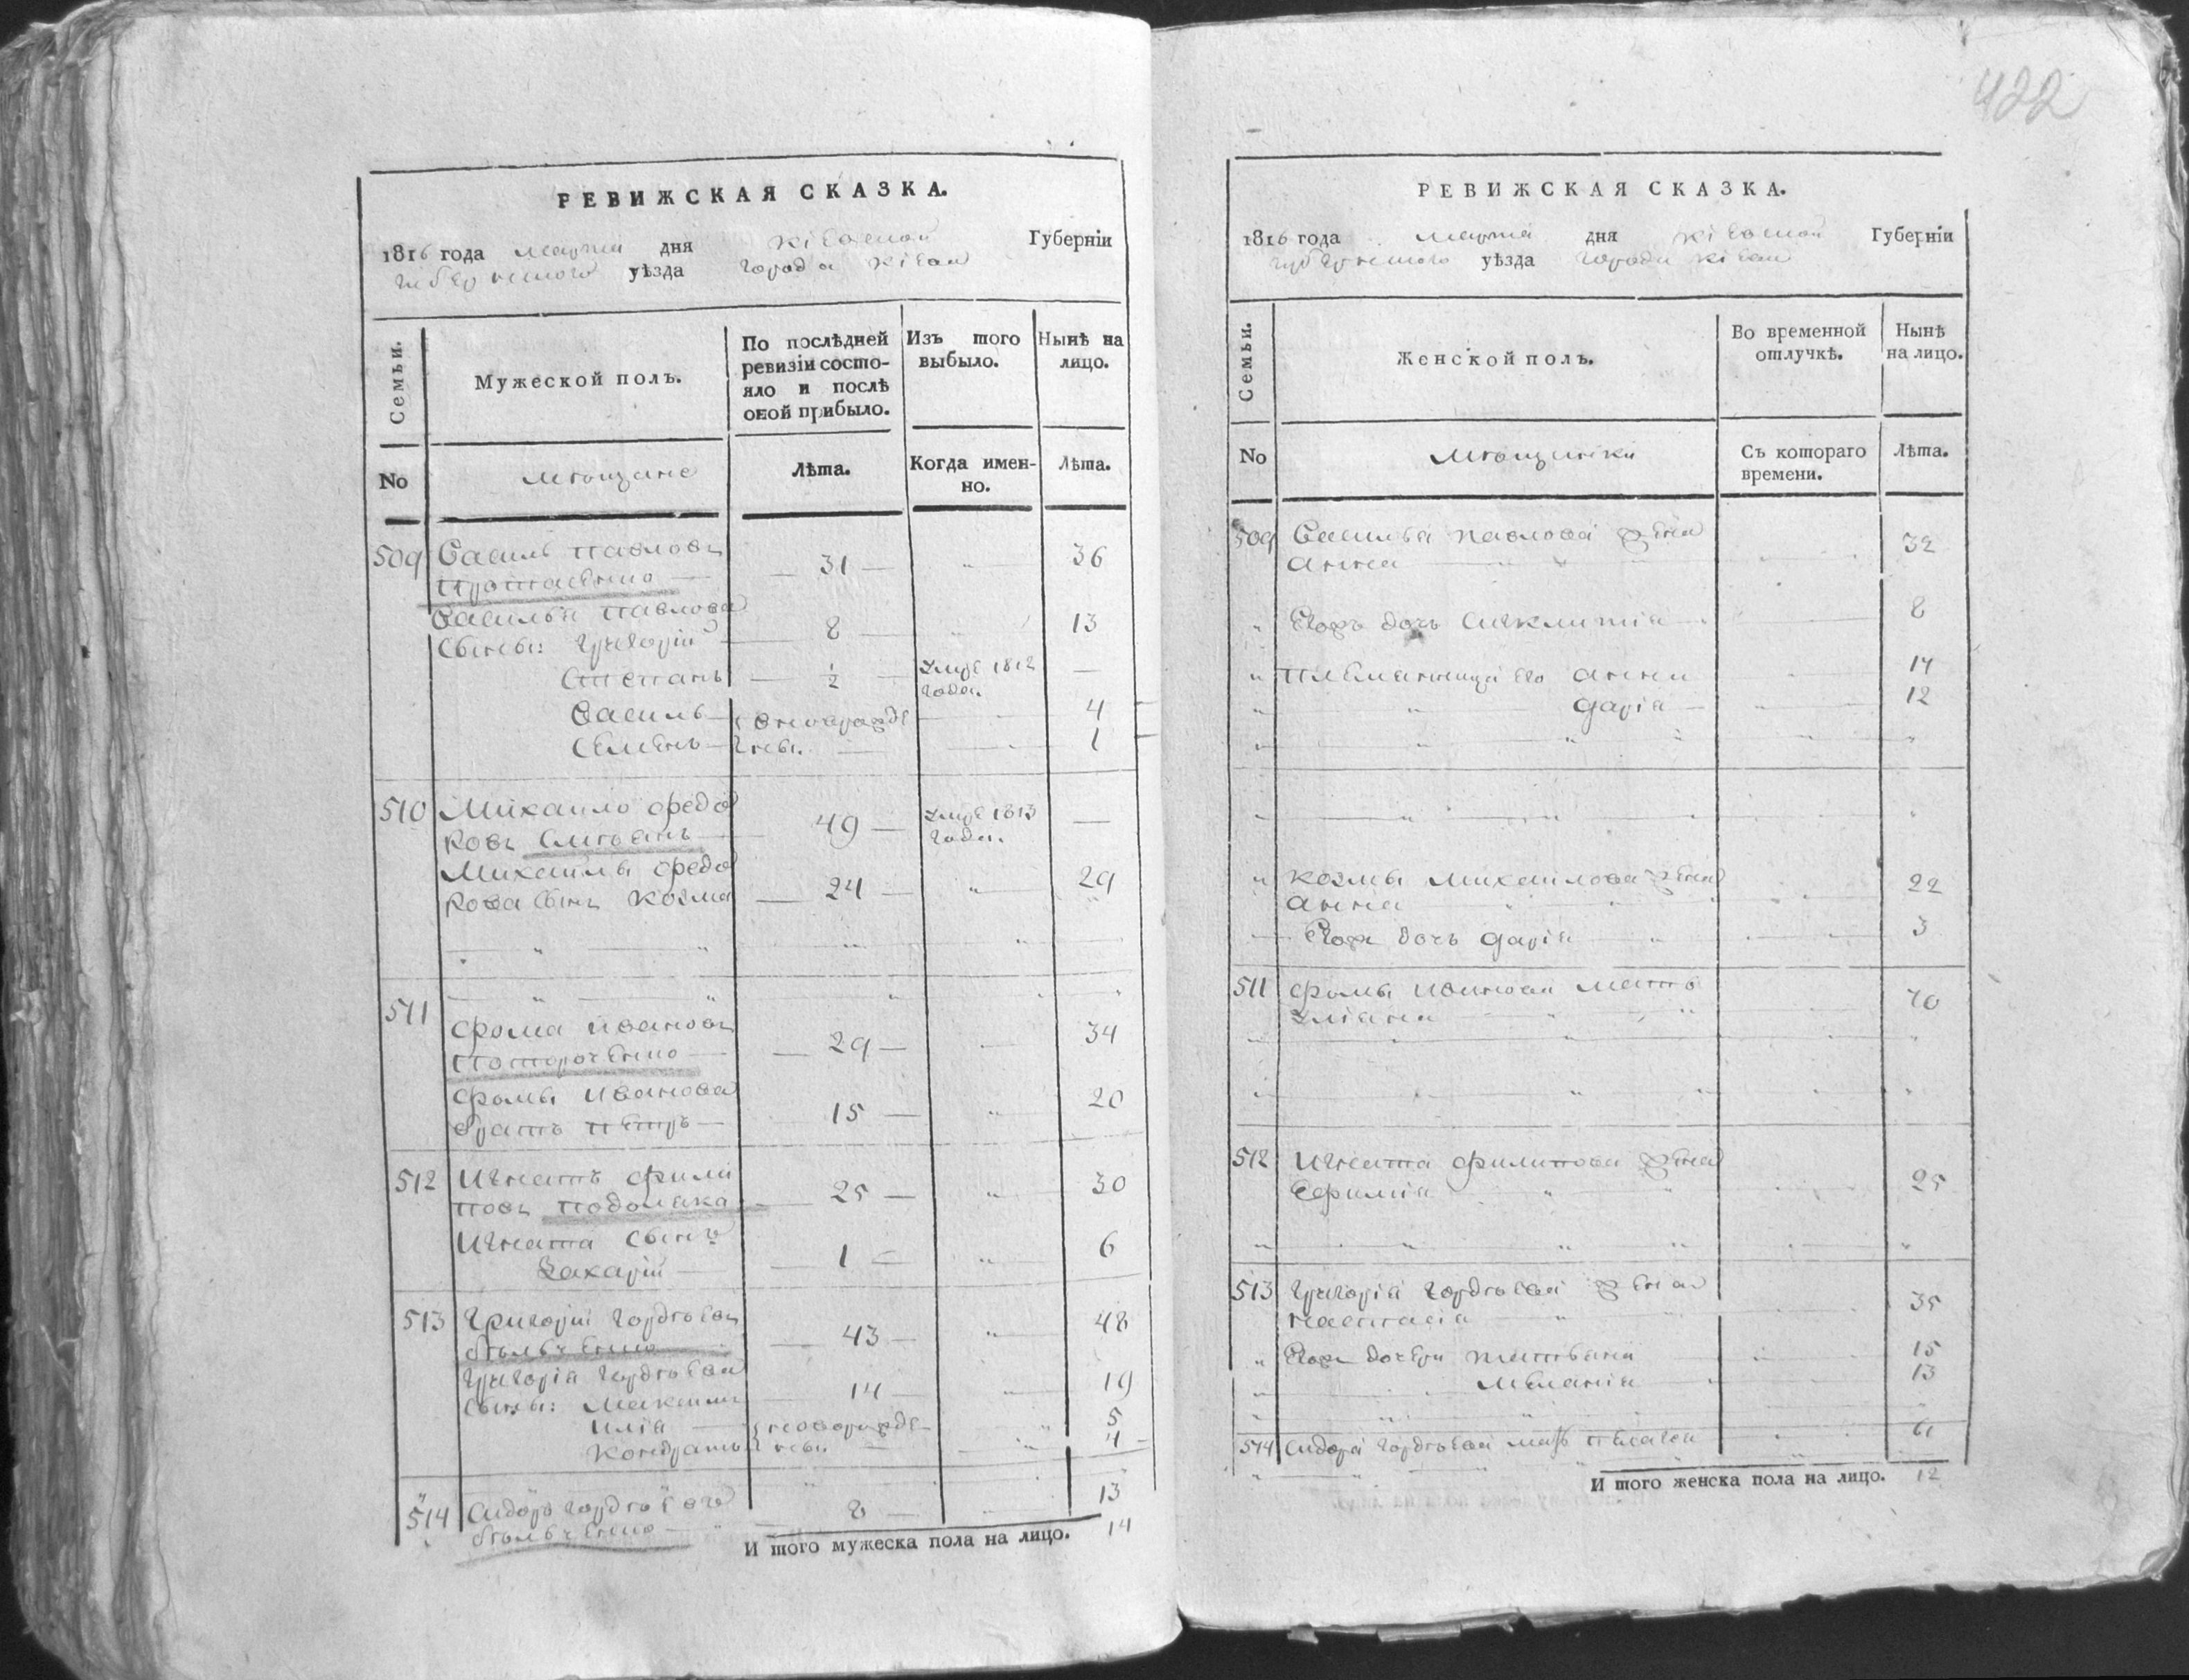 РЕВИЖСКАЯ СКАЗКА.
1816 года марта дня Кіевской Губерніи
Губернского уѣзда города Кіева
Семьи.
Мужеской полъ.
По послѣдней ревизіи состояло и послѣ оной прибыло.
Изъ того выбыло.
Нынѣ на лицо.
No
мѣщане
Лѣта.
Когда именно.
Лѣта.
509 Василь Павловъ
31 36
Василья Павлова
сыны: Григорій 8 13
Степанъ ½ умре 1812 года.
Василь 4
Семенъ 1
510 Михайло Федо
ровъ 49 умре 1813 года.
Михайлы Федо
рова сынъ Козма 24 29
511
Фома Ивановъ
29 34
Фомы Иванова
братъ Петръ 15 20
512 Игнатъ Фили
повъ Подоляка 25 30
Игната сынъ
Захарій 1 6
513 Григорій Гордѣевъ
Бѣльченко 43 48
Григорія Гордѣева
сыны: Максимъ 14 19
Илія новорожде 5
Кондратъ нны 4
514 Сидоръ Гордѣевъ
Бѣльченко 8 13
И того мужеска пола на лицо. 14
422
РЕВИЖСКАЯ СКАЗКА.
1816 года марта дня Кіевской Губерніи
Губернского уѣзда города Кіева
Семьи.
Женской полъ.
Во временной отлучкѣ.
Нынѣ на лицо.
No
мѣщанки
Съ котораго времени.
Лѣта.
509 Василья Павлова жена
Анна 32
Егожъ дочь 8
племянница его Анна 14
Дарія 12
Козмы Михайлова жена
Анна 22
Егожъ дочь Дарія 3
511 Фомы Иванова мать
Уліана 70
512 Игната Филипова жена
Ефимія 25
513 Григорія Гордѣева жена
Настасія 35
Егожъ дочери Татіана 15
Меланія 13
514 Сидора Гордѣева мать Пелагея 61
И того женска пола на лицо. 12